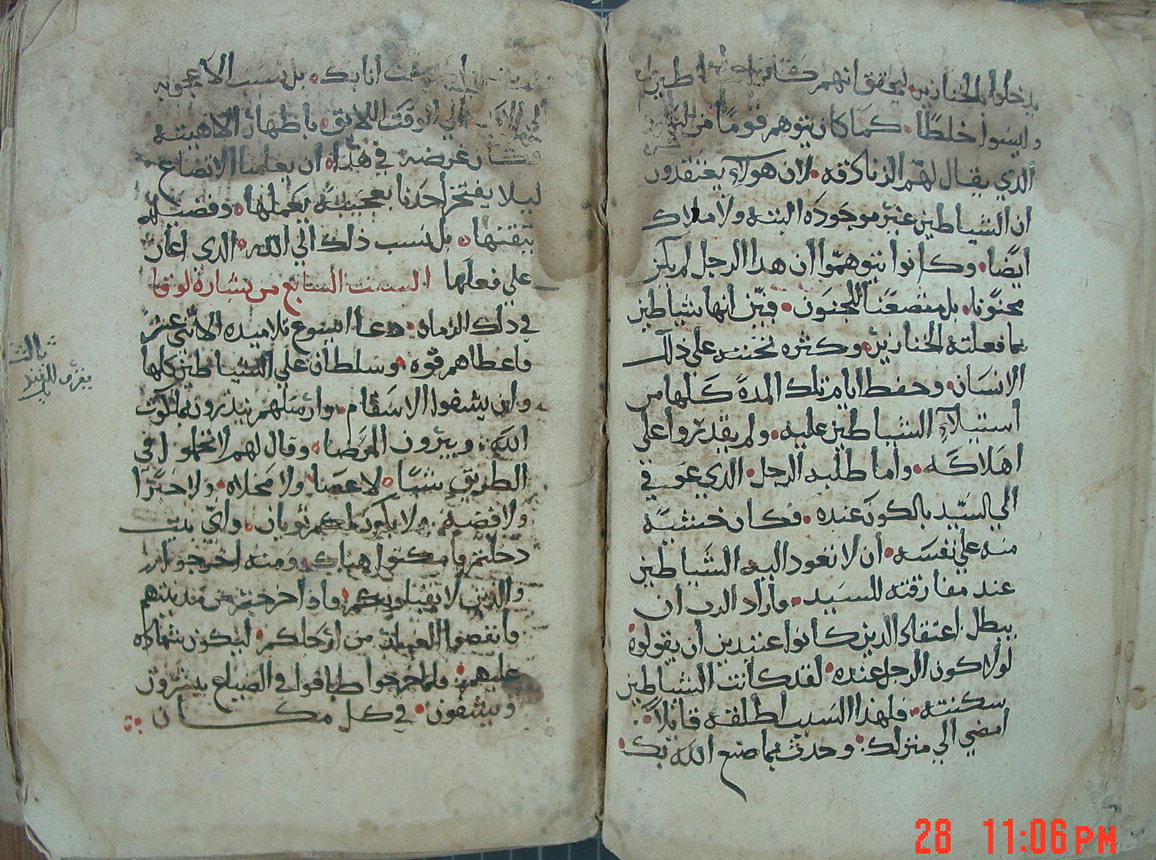 يدخلوا الخنازير ليحقق انهم كانوا شياطين
وليسوا خلطًا كما كان يتوهم قومًا من
الذي يقال لهم الزنادقه لان هولاء يعتقدون
ان الشياطين غير موجوده البته ولا ملاك
ايضًا وكانوا يتوهموا ان هذا الرجل لم يكن
مجنونا بل متصنعًا للجنون فبيّن انها شياطين
بما فعلته الخنازير وكثره تحننه على ذلك
الانسان وحفظ ايام تلك المدة كلها من
استيلاء الشياطين عليه ولم يقدروا على
اهلاكه واما طلبه الرجل الذي عوفي
الي السيد بالكون عنده فكان خشية
منه علي نفسه ان لا تعود اليه الشياطين
عند مفارقته للسيد واراد الرب ان
يبطل اعتقاد الذين كانوا عتيدين ان يقولوا
لولا كون الرجل عنده لقد كانت الشياطين
سكنته فلهذا السبب اطلقه قايلاً
امضي الي منزلك وحدث بما صنع الله بك
انا بك بل نسب الاعجوبه
الي الاب الي الوقت اللايق باظهار الاهيته
فكان غرضه في هذا ان يعلمنا الاتضاع
ليلا يفتخر احدنا بعجيبة يعملها وفضيله
يتقنها بل ينسب ذلك الي الله الذي اعان
علي فعلها السبت السابع من بشارة لوقا
في ذلك الزمان دعا ايسوع تلاميذه الاثني عشر
واعطاهم قوه وسلطان علي الشياطين كلها
وان يشفوا الاسقام وارسلهم ينذرون بملكوت
الله ويبرون المرضا وقال لهم لا تحملوا في
الطريق شيًا لا عصا ولا مخلاه ولا خبزًا
ولا فضه ولا يكون لكم ثوبان واي بيت
دخلتم فامكثوا هناك ومنه اخرجوا
والذين لا يقبلونكم فاذا خرجتم من مدينتهم
فانفضوا الغبار من ارجلكم ليكون شهاده
عليهم فلما خرجوا طافوا في الضياع يبشرون
ويشفون في كل مكان